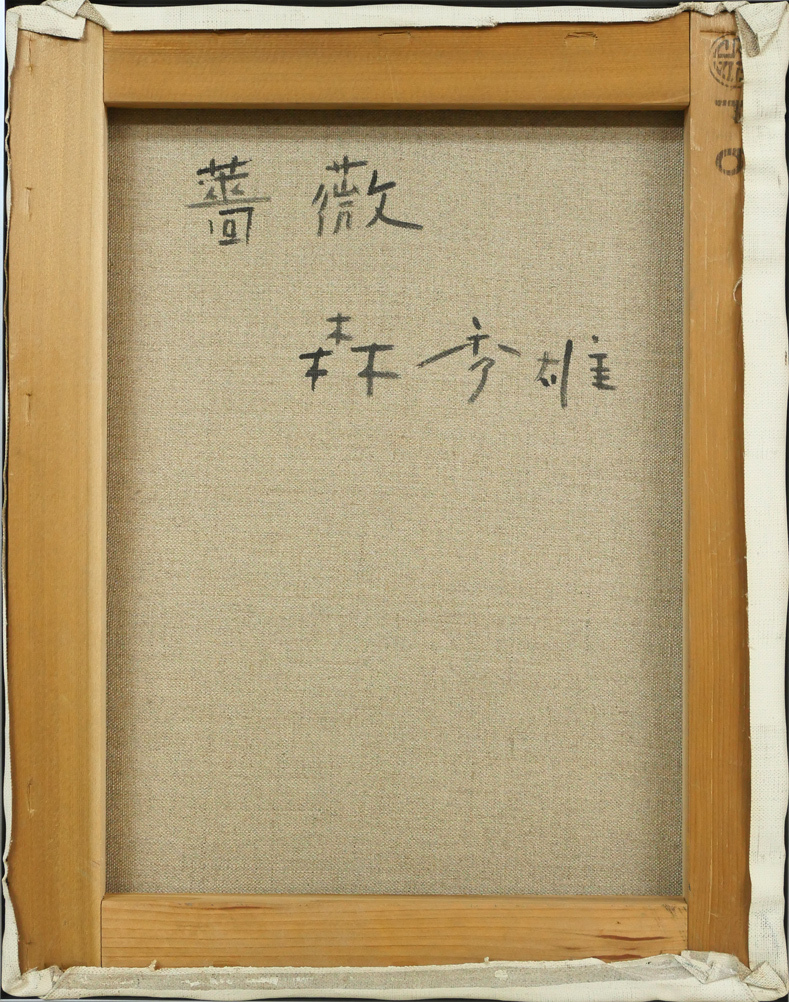 薔薇
森秀雄